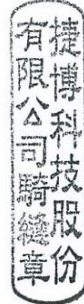 捷博科技股份
有限公司騎縫章